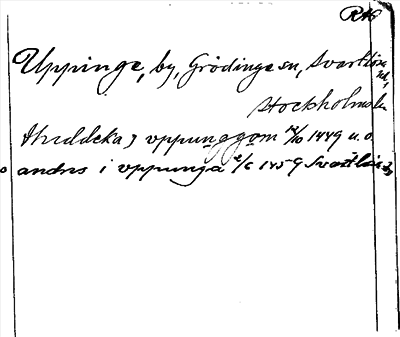 RAÖ
Uppinge, by, Grödinge sn, Svartlösa
hd,
Stockholms län
Huddeka j vppunggom 14/10 1449 u.o.
andrs i vppunga 2/6 1459 Svartlösa